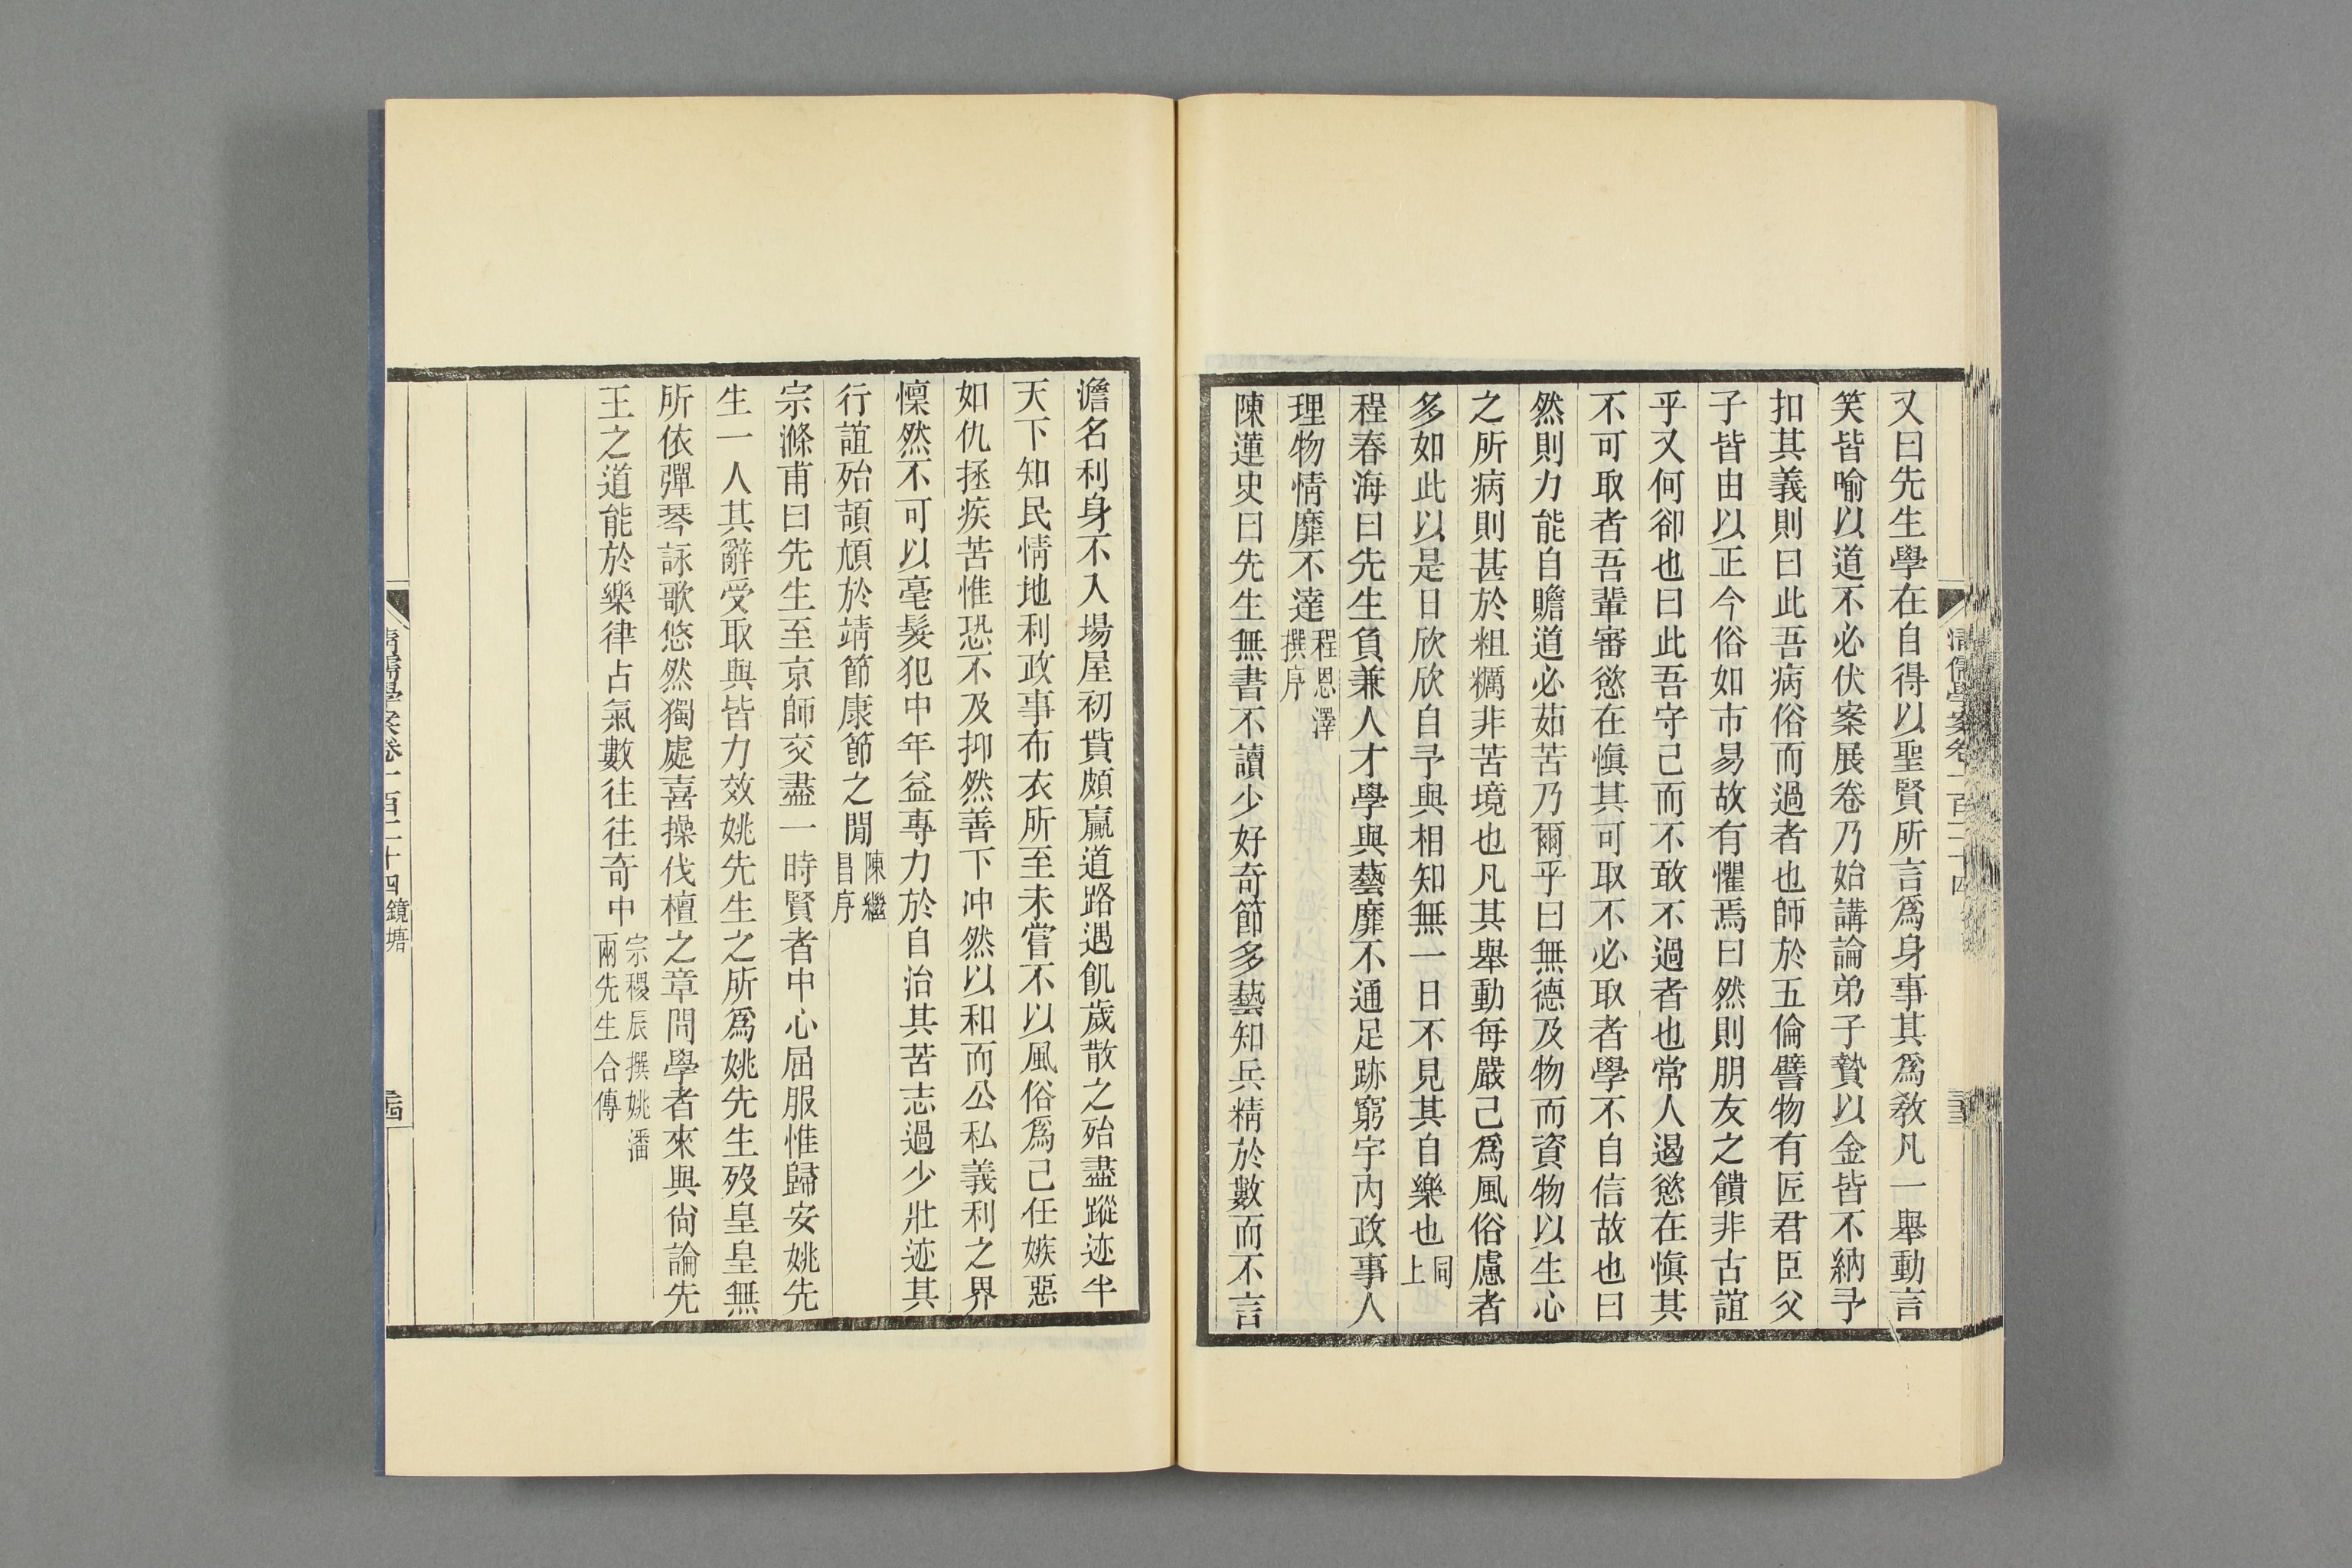 清儒學案卷一百二十四
又曰先生學在自得以聖賢所言爲身事其爲教凡一舉動言
笑皆喻以道不必伏案展卷乃始講論弟子贄以金皆不納予
扣其義則曰此吾病俗而過者也師於五倫譬物有匠君臣父
子皆由以正今俗如市易故有懼焉曰然則朋友之饋非古誼
乎又何卻也曰此吾守己而不敢不過者也常人遏慾在愼其
不可取者吾輩審慾在愼其可取不必取者學不自信故也曰
然則力能自贍道必茹苦乃爾乎曰無德及物而資物以生心
之所病則甚於粗糲非苦境也凡其舉動每嚴己爲風俗慮者
多如此以是日欣欣自予與相知無一日不見其自樂也同上
程春海曰先生負兼人才學與藝靡不通足跡窮宇內政事人
理物情靡不達程恩澤撰序
陳蓮史曰先生無書不讀少好奇節多藝知兵精於數而不言
澹名利身不入場屋初貲頗贏道路遇飢歲散之殆盡蹤迹半
天下知民情地利政事布衣所至未嘗不以風俗爲己任嫉惡
如仇拯疾苦惟恐不及抑然善下冲然以和而公私義利之界
懍然不可以毫髮犯中年益專力於自治其苦志過少壯迹其
行誼殆頡頏於靖節康節之閒陳繼昌序
宗滌甫曰先生至京師交盡一時賢者中心屈服惟歸安姚先
生一人其辭受取與皆力效姚先生之所爲姚先生歿皇皇無
所依彈琴詠歌悠然獨處喜操伐檀之章問學者來與尙論先
王之道能於樂律占氣數往往奇中宗稷辰撰姚潘兩先生合傳
清儒學案卷一百二十四 鏡塘